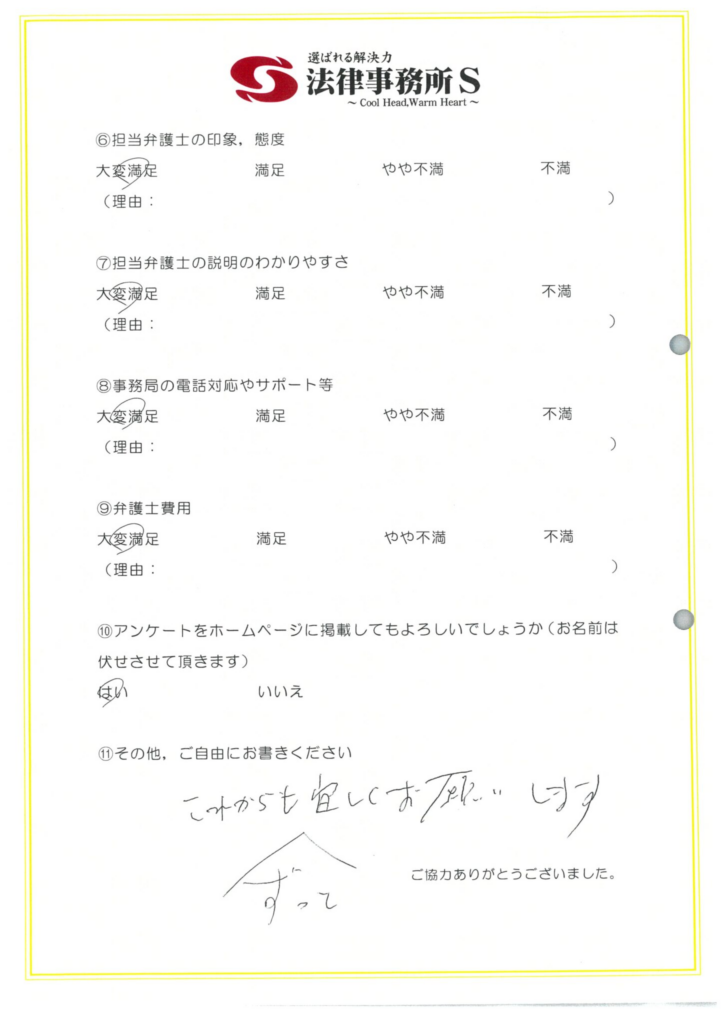 選ばれる解決力
法律事務所S
～Cool Head,Warm Heart～
⑥担当弁護士の印象，態度
大変満足 満足 やや不満 不満
（理由： ）
⑦担当弁護士の説明のわかりやすさ
大変満足 満足 やや不満 不満
（理由： ）
⑧事務局の電話対応やサポート等
大変満足 満足 やや不満 不満
（理由： ）
⑨弁護士費用
大変満足 満足 やや不満 不満
（理由： ）
⑩アンケートをホームページに掲載してもよろしいでしょうか（お名前は
伏せさせて頂きます）
はい いいえ
⑪その他，ご自由にお書きください
これからも宜しくお願い します
ずって
ご協力ありがとうございました。